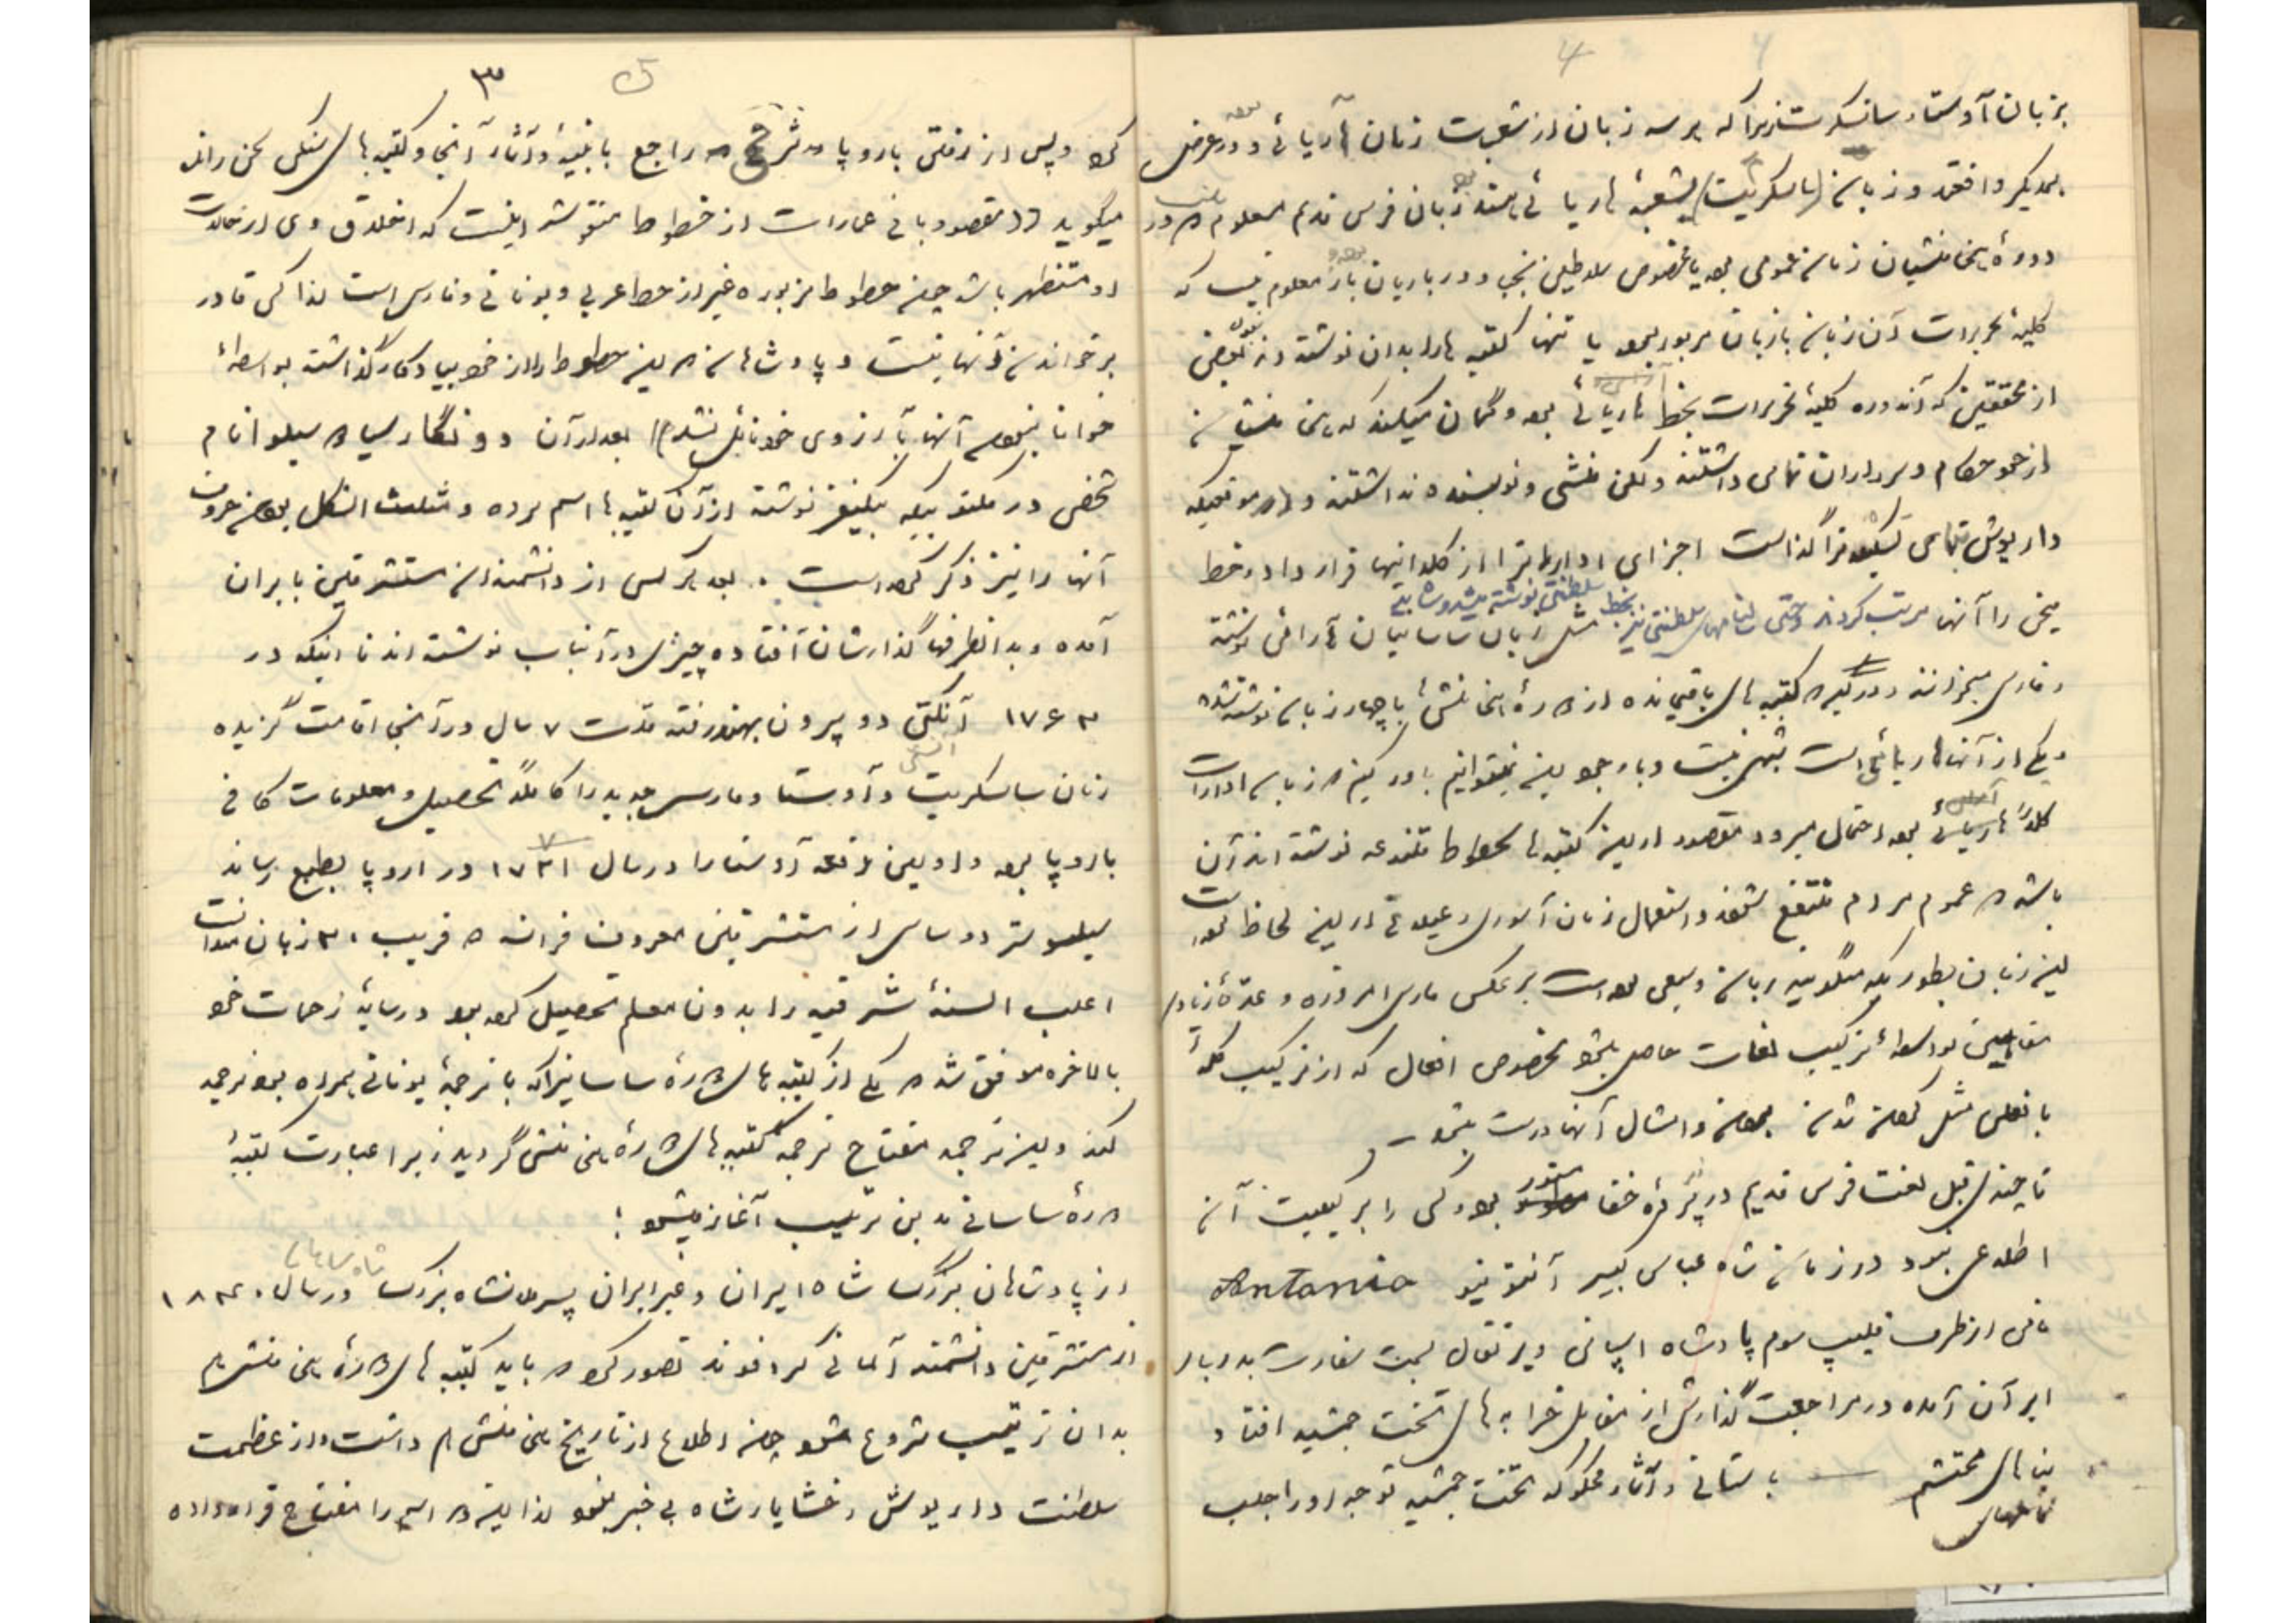 ۴
بزبان آوستا و سانسکرت زیرا که هر سه زبان از شعبت زبان آریائی و در عرض
همدیگر واقعند و زبان (سانسکریت) شعبهٔ آریائی هستند زبان فرس قدیم معلوم
دورهٔ هخامنشیان زبان عمومی بوده یا مخصوص سلاطین نجبا و درباریان باز معلوم نیست که
کلیهٔ تحریرات آن زمان بازبان مزبور بوده یا تنها کتیبه ها را بدان نوشته اند بعضی
از محققین که آندوره کلیهٔ تحریرات بخط آریائی بوده و گمان میکنند که هخامنشیان
از خود حکام و سرداران نامی داشتند ولکن منشی و نویسنده نداشتند و در موقعیکه
داریوش بنای تشکیلات گذاشت اجزای ادارات را از کلدانیها قرار داد و خط
میخی را آنها مرتب کردند و حتی سلطنتی نیز بخط سلطنتی نوشته میشد مثل زمان ساسانیان آرامی نوشته
و فارسی میخواندند و دیگر که کتیبه های باقیمانده از دورهٔ هخامنشی با چهار زبان نوشته شده
و یکی از آنها آریائی است شبهه نیست و با وجود این نمیتوانیم باور کنیم که زبان ادارات
کلاً آریائی بوده احتمال میرود مقصود از این کتیبه ها بخطوط متنوعه نوشته اند آن
باشد که عموم مردم منتفع شوند و استعمال زبان آسوری و عیلامی از این لحاظ بوده است
این زبان بطوریکه میگویند زبان وسیعی بوده است بر عکس فارسی امروزه و عدهٔ زیادی
مفاهیم بواسطهٔ ترکیب لغات حاصل میشود بخصوص افعال که از ترکیب کلمه
با فعلی مثل کردن شدن بودن و امثال آنها درست میشود
تا چندی قبل لغت فرس قدیم در پردهٔ خفا مستور بود و کسی را بر کیفیت آن
اطلاعی نبود در زمان شاه عباس کبیر آنتونیو Antonio
نامی از طرف فیلیپ سوم پادشاه اسپانی و پرتقال بسمت سفارت بدربار
ایران آمده در مراجعت گذارش از مقابل خرابه های تخت جمشید افتاد
بنای محتشم باستانی و آثار محکوکه تخت جمشید توجه او را جلب
۳ ۵
کرد و پس از رفتن باروپا شرحی راجع بابنیه و آثار آنجا و کتیبه های سنگی سخن رانده
میگوید (( مقصود بانی عمارات از خطوط منقوشه اینست که اخلاف وی از حالات
او مستظهر باشند چون خطوط مزبوره غیر از خط عربی و یونانی و فارسی است لذا کسی قادر
بر خواندن آنها نیست و پادشاهان که این خطوط را از خود بیادگار گذاشته بواسطهٔ
خوانا نبودن آنها بآرزوی خود نایل نشدند)) بعد از آن دونگارسیا سیلوا نام
شخصی در مکتوبیکه بیکنفر نوشته از آن کتیبه ها اسم برده و مثلث الشکل بودن حروف
آنها را نیز ذکر کرده است. بعد هر کس از دانشمندان مستشرقین بایران
آمده و بدانطرفها گذارشان افتاده چیزی در آنباب نوشته اند تا اینکه در
۱۷۶۳ آنکتی دوپرون بهند رفته مدت ۷ سال در آنجا اقامت گزیده
زبان سانسکریت و آوستا و فارسی جدید را کاملاً تحصیل و معلومات کافی
باروپا برد و اولین دفعه آوستا را در سال ۱۷۷۱ در اروپا بطبع رساند
سیلوستر دوساسی از مستشرقین معروف فرانسه که قریب ۳۰ زبان میدانست
اغلب السنهٔ شرقیه را بدون معلم تحصیل کرده بود و در سایهٔ زحمات خود
بالاخره موفق شد که یکی از کتیبه های دورهٔ ساسانیرا که با ترجمهٔ یونانی همراه بود ترجمه
کند و این ترجمه مفتاح ترجمه کتیبه های دورهٔ هخامنشی گردید زیرا عبارت کتیبهٔ
دورهٔ ساسانی بدین ترتیب آغاز میشود :
از پادشاهان بزرگ شاه ایران و غیر ایران پسر شاه بزرگ در سال ۱۸۳۰
از مستشرقین دانشمند آلمانی گروتفوند تصور کرد که باید کتیبه های دورهٔ هخامنشی هم
بدان ترتیب شروع شود چون اطلاع از تاریخ هخامنشی هم داشت و از عظمت
سلطنت داریوش و خشایارشاه بی خبر نبود لذا این دو اسم را مفتاح قرار داده